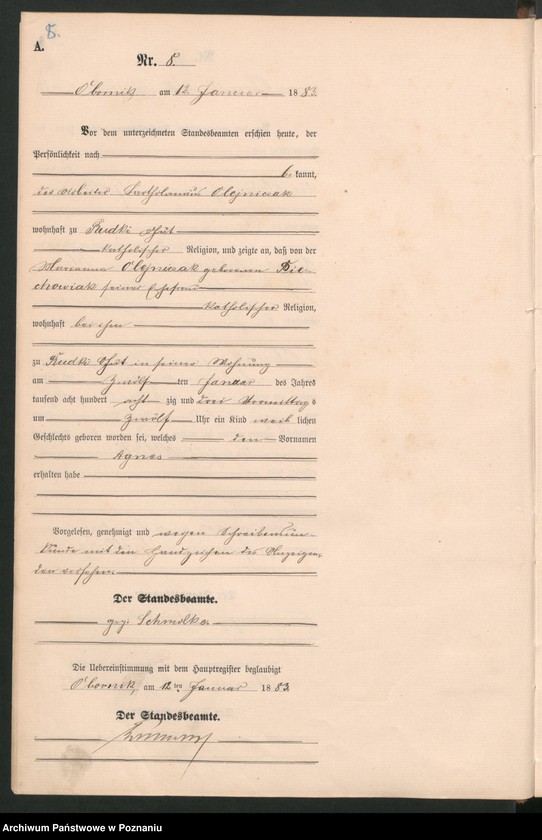 8.
A.
Nr. 8.
Obornik, am 12 Januar 1883.
Vor dem unterzeichneten Standesbeamten erschien heute, der
Persönlichkeit nach
bekannt,
der Arbeiter Bartholomäus Olejniczak
wohnhaft zu Rudki Hut
katholischer Religion, und zeigte an, daß von der
Marianna Olejniczak geborenen
seiner Ehefrau
katholischer Religion,
wohnhaft bei ihm
zu Rudki Hut in seiner Wohnung
am zwölf ten Januar des Jahres
tausend acht hundert acht zig und drei Vormittags
um zwölf Uhr ein Kind weib lichen
Geschlechts geboren worden sei, welches den Vornamen
Agnes
erhalten habe
Vorgelesen, genehmigt und wegen Schreibensun-
kunde mit den Handzeichen des Anzeigen-
den versehen.
Der Standesbeamte.
gez. Schmolke
Die Uebereinstimmung mit dem Hauptregister beglaubigt
Obornik, am 12 ten Januar 1883.
Der Standesbeamte.
Archiwum Państwowe w Poznaniu